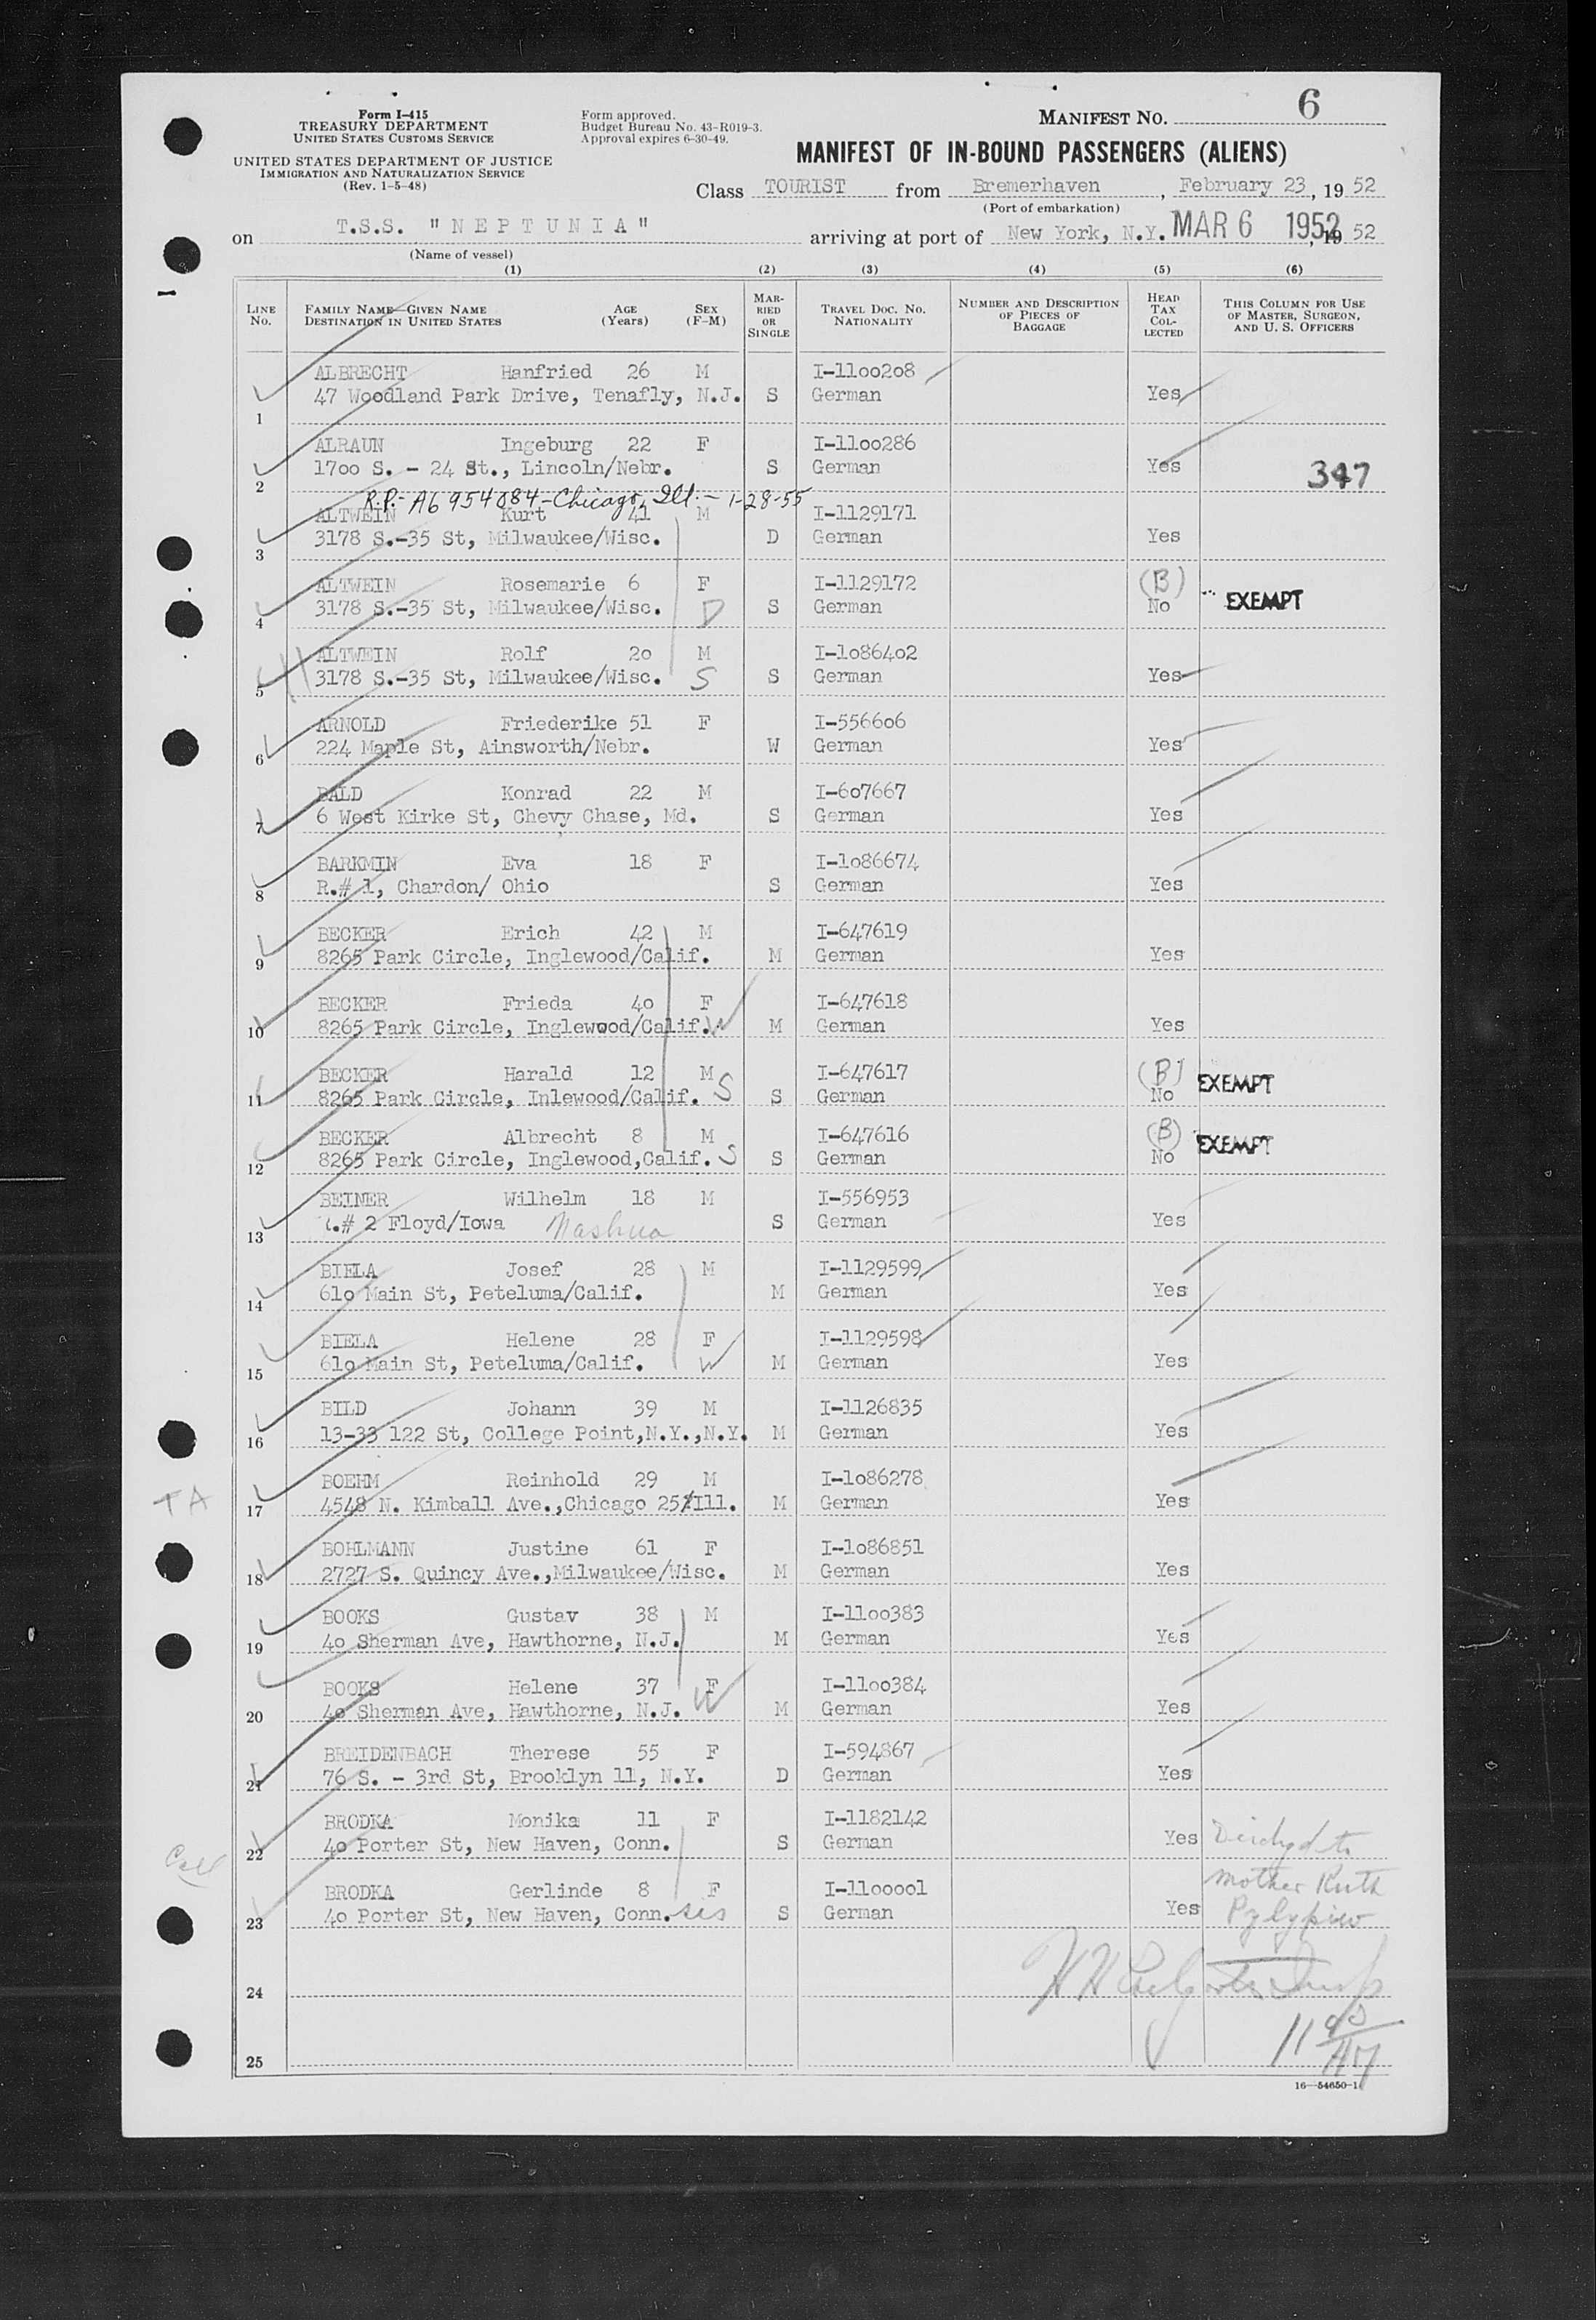 Form I-415
TREASURY DEPARTMENT
UNITED STATES CUSTOMS SERVICE
UNITED STATES DEPARTMENT OF JUSTICE
IMMIGRATION AND NATURALIZATION SERVICE
(Rev. 1-5-48)
Form approved.
Budget Bureau No. 43-R019-3.
Approval expires 6-30-49.
MANIFEST NO. 6
MANIFEST OF IN-BOUND PASSENGERS (ALIENS)
Class TOURIST from Bremerhaven, February 23, 19 52
(Port of embarkation)
on T.S.S. "NEPTUNIA" arriving at port of New York, N.Y. MAR 6 1952, 19 52
(Name of vessel)
(1) (2) (3) (4) (5) (6)
LINE NO.
FAMILY NAME—GIVEN NAME
DESTINATION IN UNITED STATES
AGE (Years)
SEX (F-M)
MARRIED OR SINGLE
TRAVEL DOC. NO. NATIONALITY
NUMBER AND DESCRIPTION OF PIECES OF BAGGAGE
HEAD TAX COLLECTED
THIS COLUMN FOR USE OF MASTER, SURGEON, AND U. S. OFFICERS
ALBRECHT Hanfried 26 M I-1100208
1 47 Woodland Park Drive, Tenafly, N.J. S German Yes
ALRAUN Ingeburg 22 F I-1100286
2 1700 S. - 24 St., Lincoln/Nebr. S German Yes 347
R.P.- A6 954084-Chicago, Ill.- 1-28-55
ALTWEIN Kurt 41 M I-1129171
3 3178 S.-35 St, Milwaukee/Wisc. D German Yes
ALTWEIN Rosemarie 6 F I-1129172 (B)
4 3178 S.-35 St, Milwaukee/Wisc. D S German No EXEMPT
ALTWEIN Rolf 20 M I-1086402
5 3178 S.-35 St, Milwaukee/Wisc. S S German Yes
ARNOLD Friederike 51 F I-556606
6 224 Maple St, Ainsworth/Nebr. W German Yes
BALD Konrad 22 M I-607667
7 6 West Kirke St, Chevy Chase, Md. S German Yes
BARKMIN Eva 18 F I-1086674
8 R.# 1, Chardon/ Ohio S German Yes
BECKER Erich 42 M I-647619
9 8265 Park Circle, Inglewood/Calif. M German Yes
BECKER Frieda 40 F I-647618
10 8265 Park Circle, Inglewood/Calif. W M German Yes
BECKER Harald 12 M I-647617 (B) EXEMPT
11 8265 Park Circle, Inlewood/Calif. S S German No
BECKER Albrecht 8 M I-647616 (B) EXEMPT
12 8265 Park Circle, Inglewood,Calif. S S German No
BEINER Wilhelm 18 M I-556953
13 .# 2 Floyd/Iowa Nashua S German Yes
BIELA Josef 28 M I-1129599
14 610 Main St, Peteluma/Calif. M German Yes
BIELA Helene 28 F I-1129598
15 610 Main St, Peteluma/Calif. W M German Yes
BILD Johann 39 M I-1126835
16 13-33 122 St, College Point,N.Y.,N.Y. M German Yes
BOEHM Reinhold 29 M I-1086278
TA 17 4548 N. Kimball Ave.,Chicago 25/Ill. M German Yes
BOHLMANN Justine 61 F I-1086851
18 2727 S. Quincy Ave.,Milwaukee/Wisc. M German Yes
BOOKS Gustav 38 M I-1100383
19 40 Sherman Ave, Hawthorne, N.J. M German Yes
BOOKS Helene 37 F I-1100384
20 40 Sherman Ave, Hawthorne, N.J. W M German Yes
BREIDENBACH Therese 55 F I-594867
21 76 S. - 3rd St, Brooklyn 11, N.Y. D German Yes
BRODKA Monika 11 F I-1182142
22 40 Porter St, New Haven, Conn. S German Yes to
BRODKA Gerlinde 8 F I-1100001 mother Ruth
23 40 Porter St, New Haven, Conn. sis S German Yes Pylypiw
24
25
16—54650-1